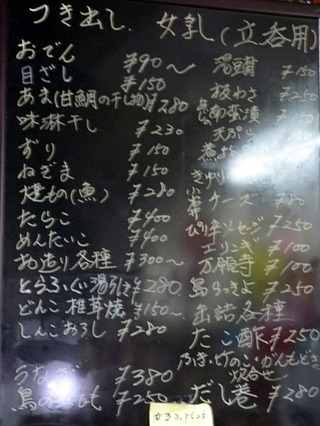 つき出し、女乳(立呑用)
おでん ¥90〜
目ざし ¥150
あま(甘鯛の干し物) ¥280
味淋干し ¥230
ずり ¥150
ねぎま ¥150
焼もの(魚) ¥280
たらこ ¥400
めんたいこ ¥400
お造り各種 ¥300〜
とらふぐ湯引き 280
どんこ椎茸焼 ¥150〜
しんこおろし ¥280
うなぎ ¥380
鳥のもも ¥250
湯腐 ¥150
板わさ ¥250
南蛮漬 ¥150
天ぷら
きゅうり
チーズ ¥80
ぴり辛ソーセージ ¥250
エリンギ ¥100
万願寺 ¥100
島らっきょ ¥250
缶詰各種
たこ酢 ¥250
ふき・竹のこ・がんもどき
炊合せ
だし巻 ¥280